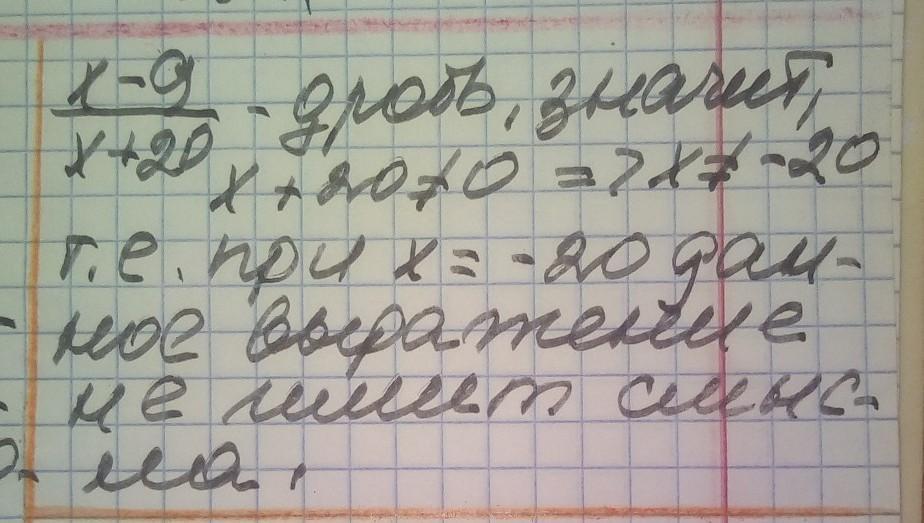 x-9
x+20 - дробь, значит,
x+20≠0 => x≠-20
т.е. при x=-20 дан-
ное выражение
не имеет смыс-
ла.